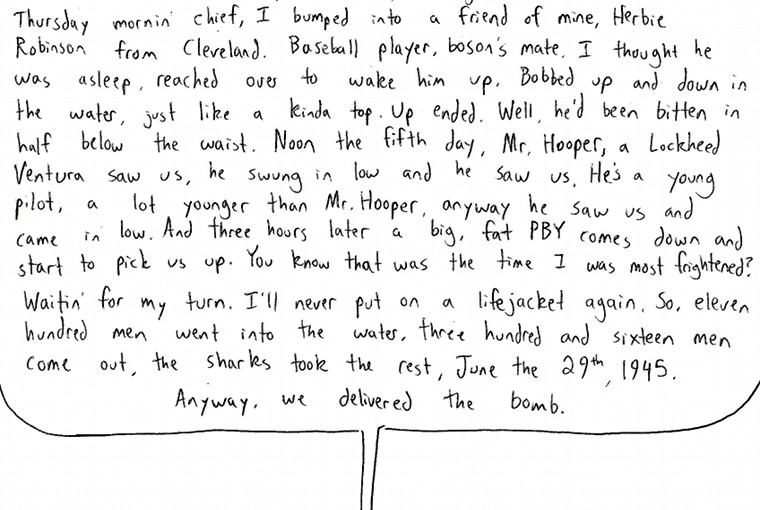 Thursday mornin' chief, I bumped into a friend of mine, Herbie
Robinson from Cleveland. Baseball player, boson's mate. I thought he
was asleep, reached over to wake him up. Bobbed up and down in
the water, just like a kinda top. Up ended. Well, he'd been bitten in
half below the waist. Noon the fifth day, Mr. Hooper, a Lockheed
Ventura saw us, he swung in low and he saw us. He's a young
pilot, a lot younger than Mr. Hooper, anyway he saw us and
came in low. And three hours later a big, fat PBY comes down and
start to pick us up. You know that was the time I was most frightened?
Waitin' for my turn. I'll never put on a lifejacket again. So, eleven
hundred men went into the water, three hundred and sixteen men
come out, the sharks took the rest, June the 29th, 1945.
Anyway, we delivered the bomb.